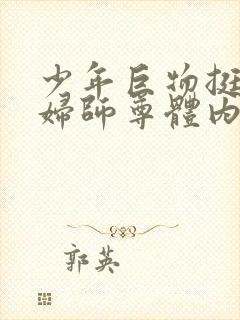 少年巨物挺
婦師尊體內
郭英